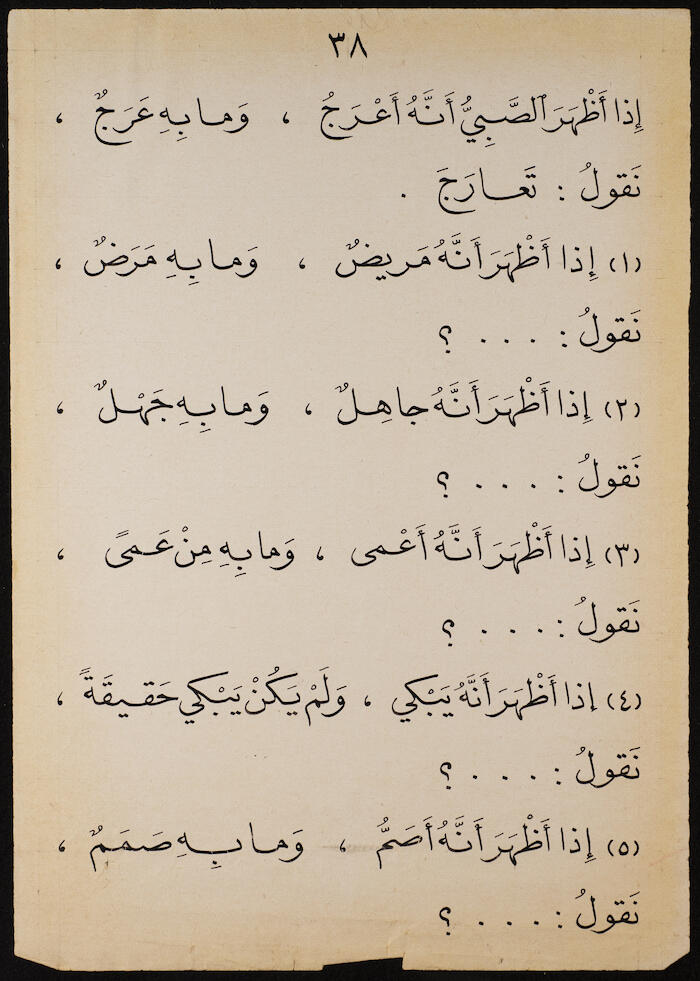 ٣٨
إِذا أَظْهَرَ ٱلصَّبِيُّ أَنَّهُ أَعْرَجُ ، وَما بِهِ عَرَجٌ ،
نَقولُ : تَعارَجَ .
(١) إِذا أَظْهَرَ أَنَّهُ مَريضٌ ، وَما بِهِ مَرَضٌ ،
نَقولُ : . . . ؟
(٢) إِذا أَظْهَرَ أَنَّهُ جاهِلٌ ، وَما بِهِ جَهْلٌ ،
نَقولُ : . . . ؟
(٣) إِذا أَظْهَرَ أَنَّهُ أَعْمى ، وَما بِهِ مِنْ عَمىً ،
نَقولُ : . . . ؟
(٤) إذا أَظْهَرَ أَنَّهُ يَبْكي ، وَلَمْ يَكُنْ يَبْكي حَقيقَةً ،
نَقولُ : . . . ؟
(٥) إِذا أَظْهَرَ أَنَّهُ أَصَمُّ ، وَما بِهِ صَمَمٌ ،
نَقولُ : . . . ؟